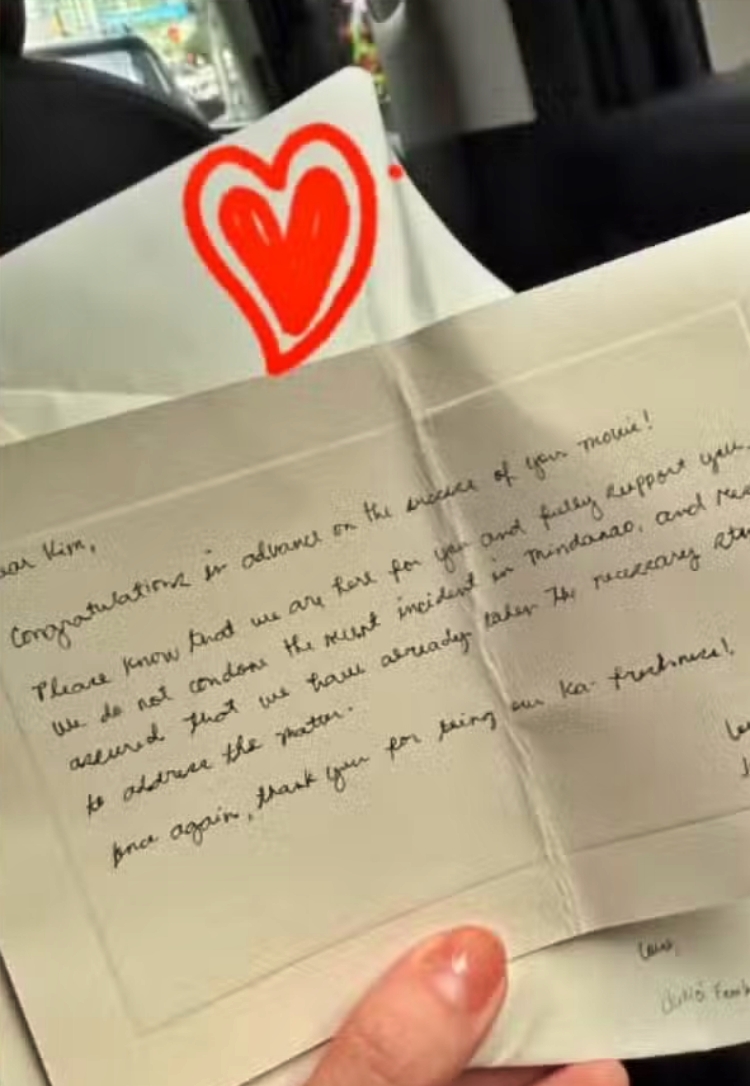 ear Kim,
Congratulations in advance on the success of your movie!
Please know that we are here for you and fully support you.
We do not condone the recent incident in Mindanao, and
assured that we have already taken the necessary
to address the matter.
Once again, thank you for being our Ka-freshness!
Love,